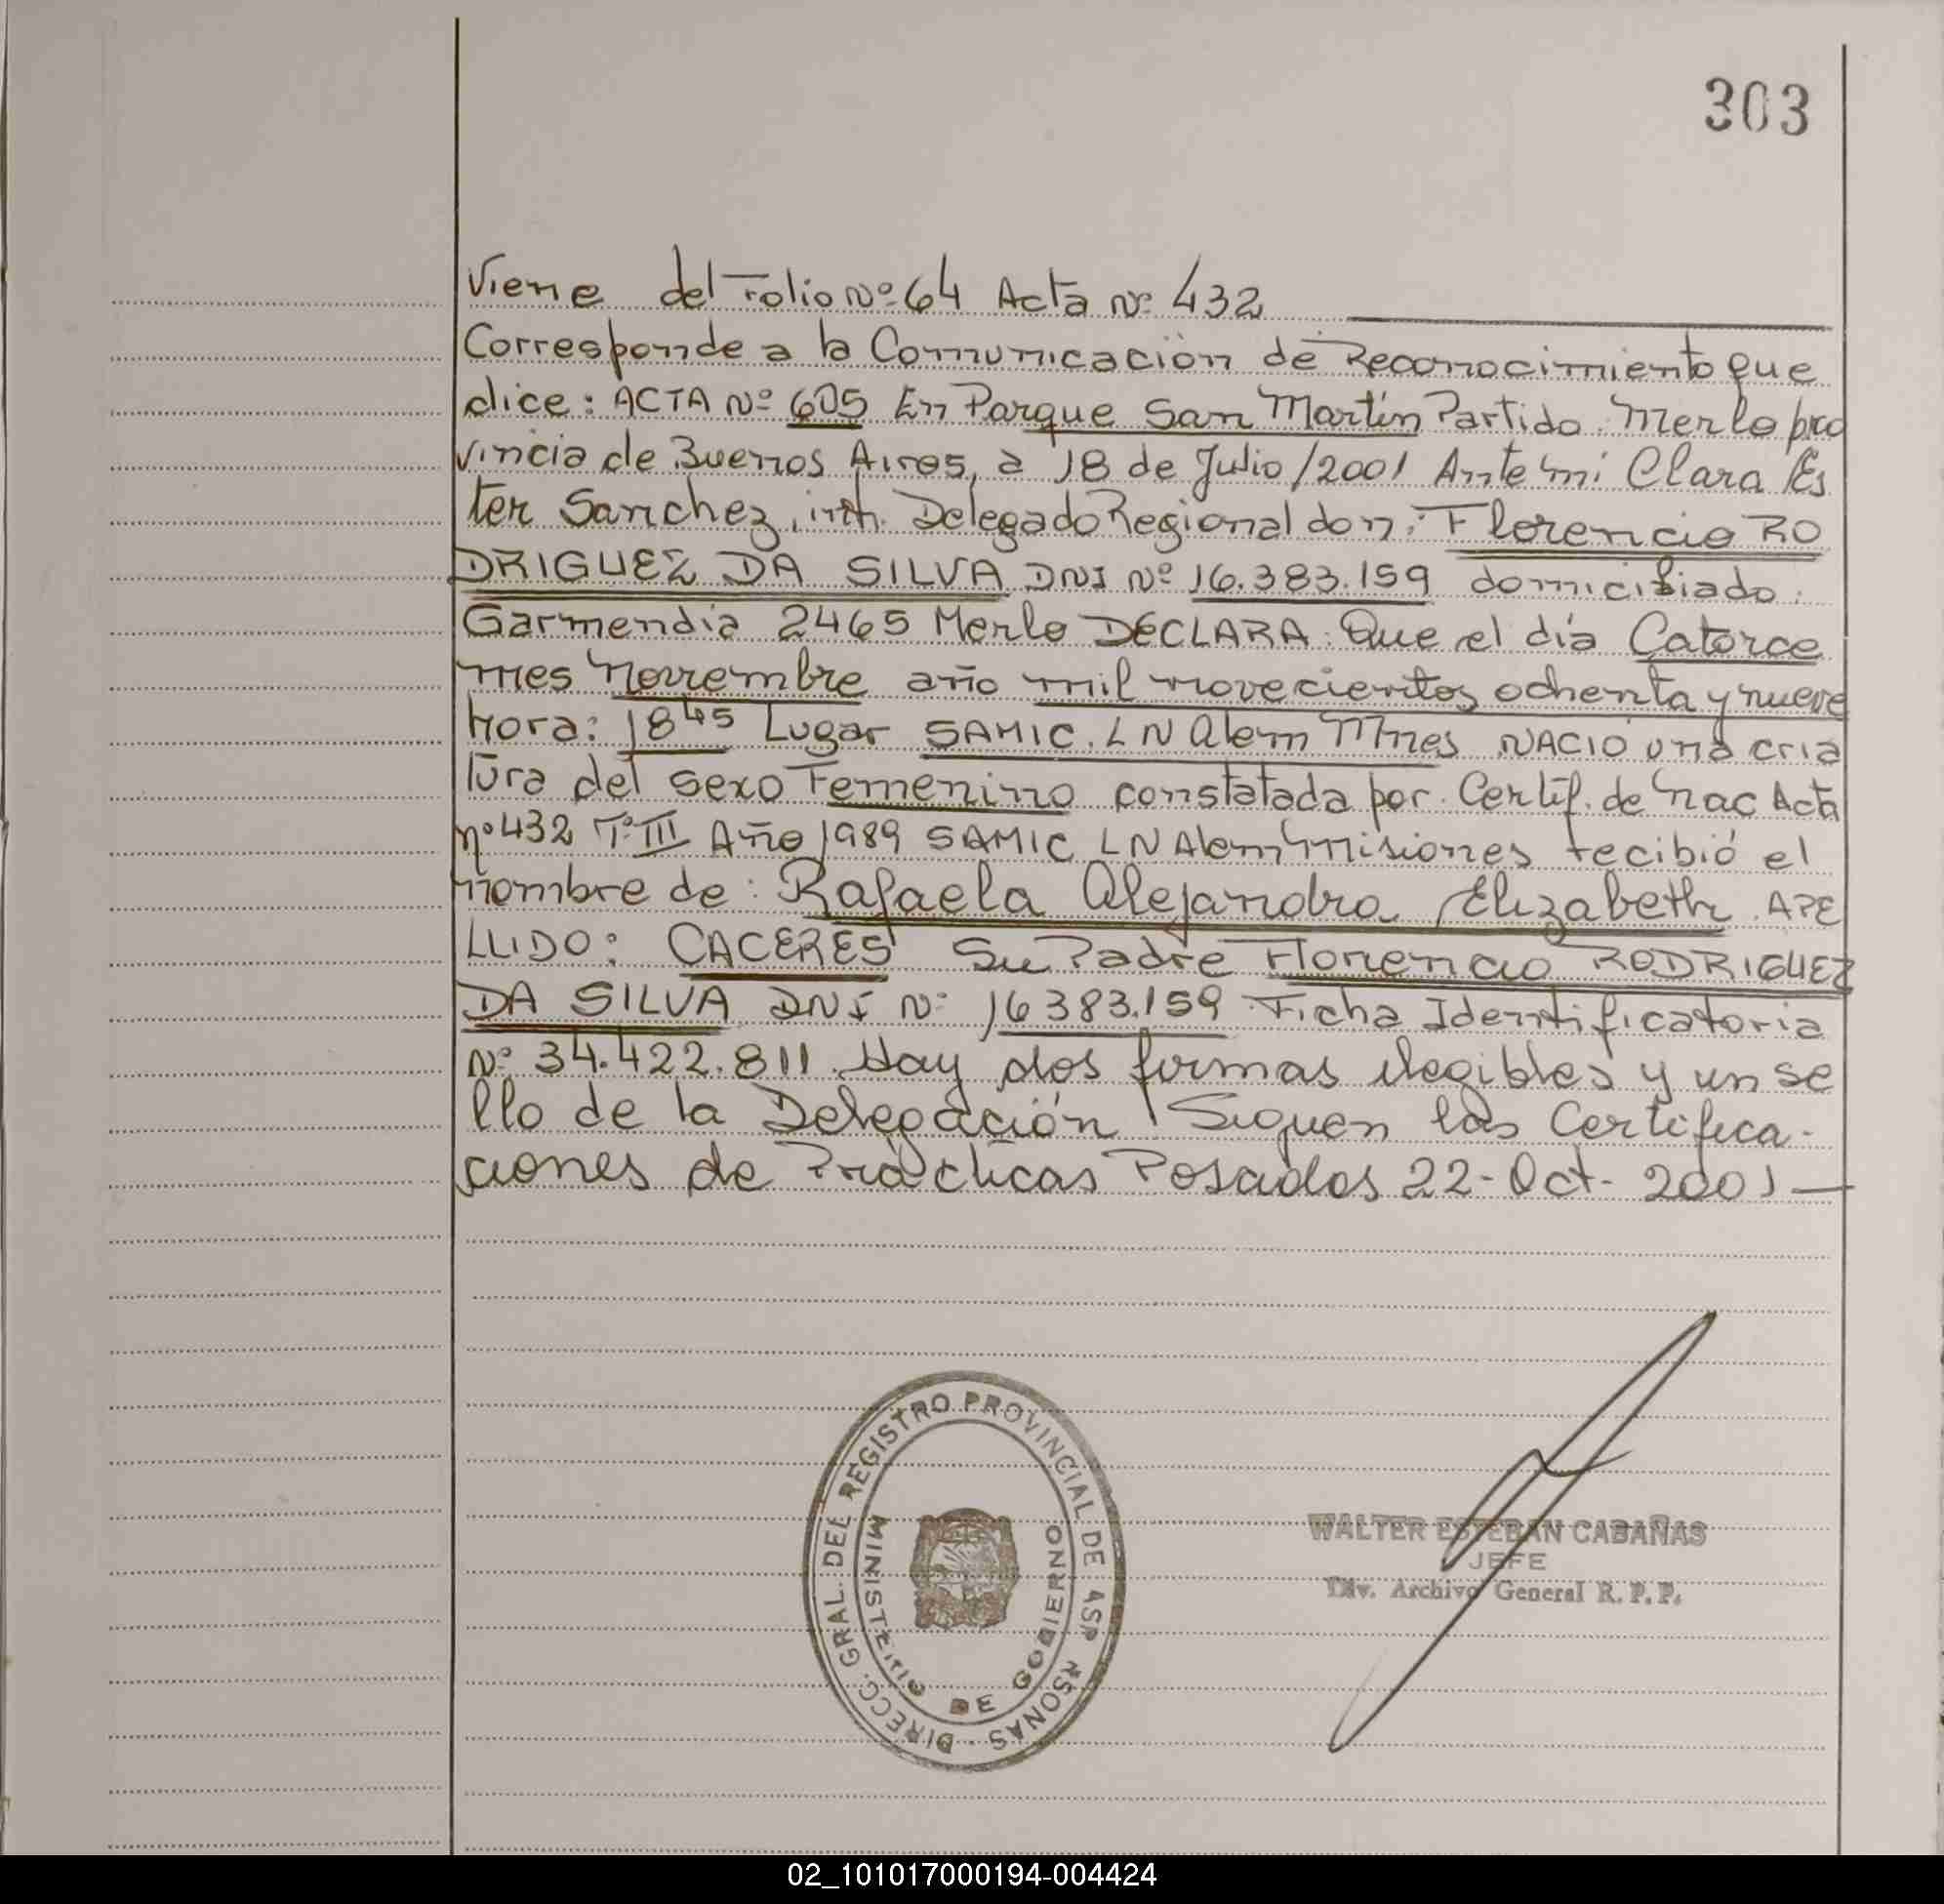 303
Viene del Folio Nº 64 Acta Nº 432
Corresponde a la Comunicación de Reconocimiento que
dice: ACTA Nº 605 En Parque San Martín Partido. Merlo pro
vincia de Buenos Aires, a 18 de Julio/2001 Ante mi Clara Es
ter Sanchez, int. Delegado Regional don: Florencio RO
DRIGUEZ DA SILVA DNI Nº 16.383.159 domiciliado:
Garmendia 2465 Merlo DECLARA: Que el día Catorce
mes Noviembre año mil novecientos ochenta y nueve
hora: 18 45 Lugar SAMIC. LN Alem Mnes NACIÓ una cria
tura del sexo Femenino constatada por. Certif. de nac Acta
nº 432 Tº III Año 1989 SAMIC LN Alem Misiones recibió el
nombre de: Rafaela Alejandra Elizabeth APE
LLIDO: CACERES Su Padre Florencio RODRIGUEZ
DA SILVA DNI Nº 16383.159 Ficha Identificatoria
Nº 34.422.811. Hay dos firmas ilegibles y un se
llo de la Delegación Siguen las Certifica-
ciones de Prácticas Posadas 22-Oct-2001—
DIRECC. GRAL. DEL REGISTRO PROVINCIAL DE LAS PERSONAS
MINISTERIO DE GOBIERNO
WALTER ESTEBAN CABAÑAS
JEFE
Div. Archivo General R. P. P.
02_101017000194-004424